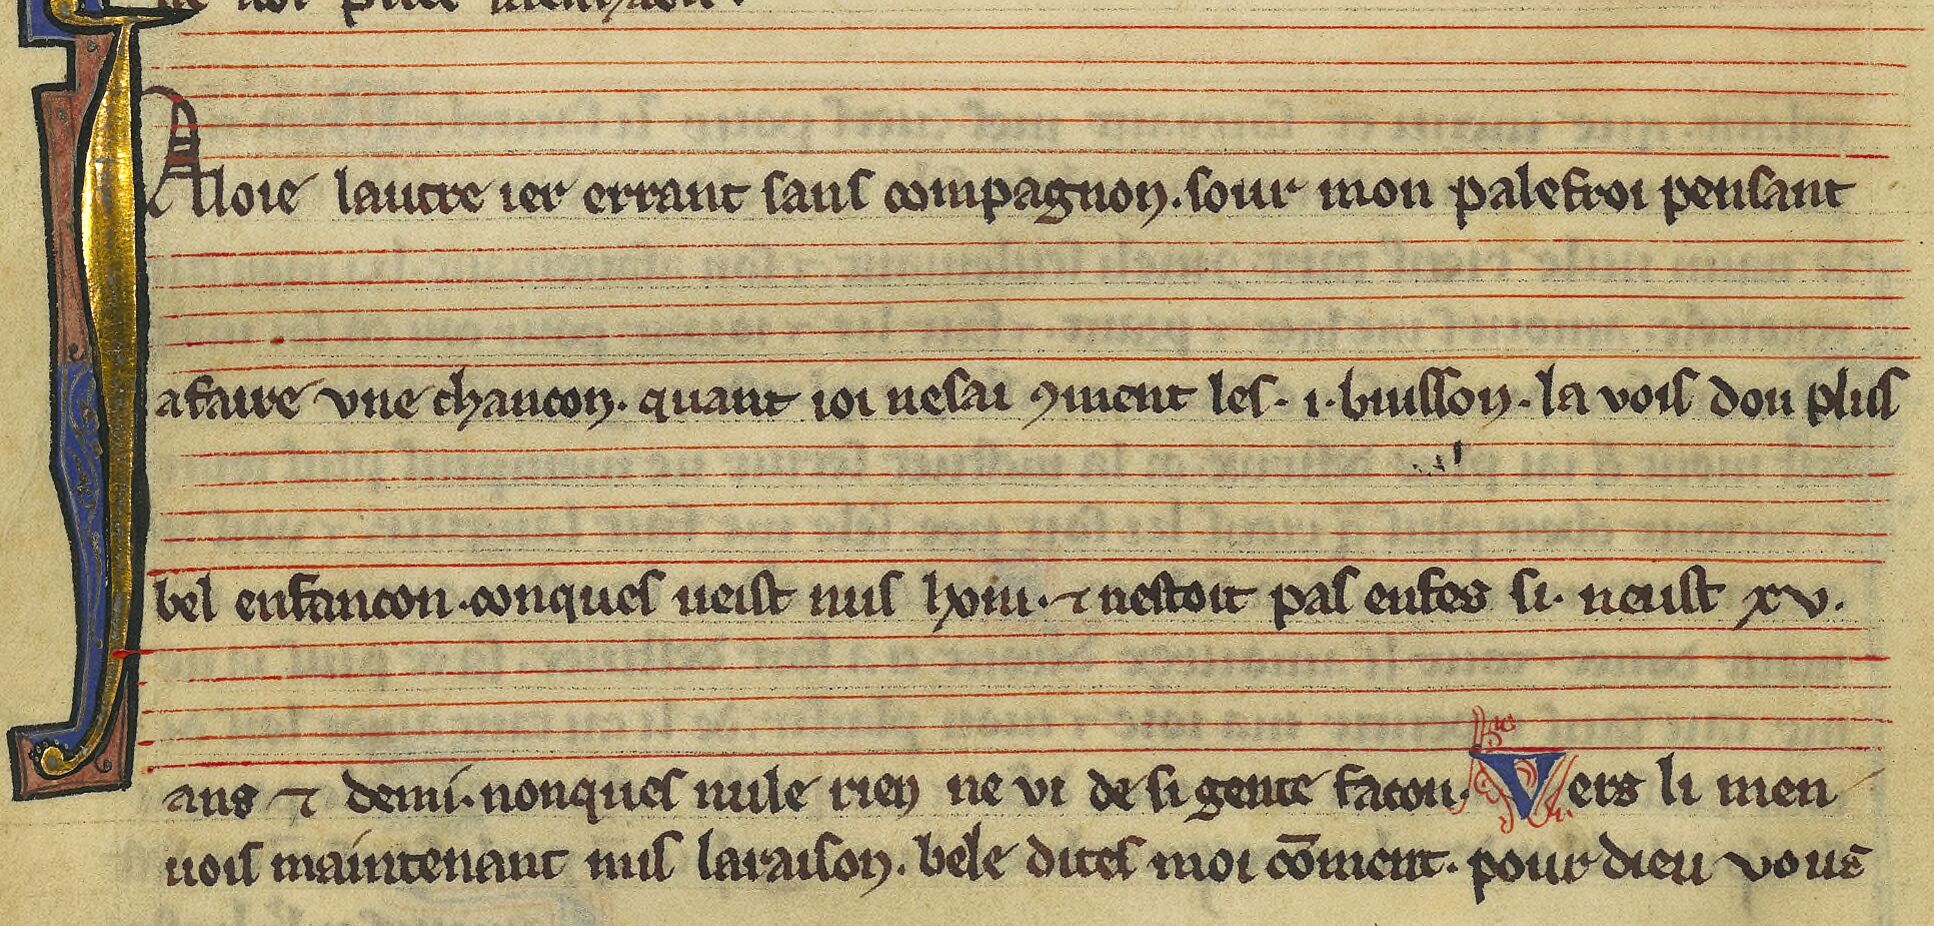 Aloie lautre ier errant sans compagnon. sour mon palefroi pensant
a faire vne chancon. quant ioi ne sai ꝯment les. i. buisson. la vois dou plus
bel enfancon. conques ueist nus hom. ⁊ nestoit pas enfes si. neust xv.
ans ⁊ demi. nonques nule rien ne vi de si gente facon. Vers li men
uois maintenant mis la raison. bele dites moi cōment. pour dieu vous